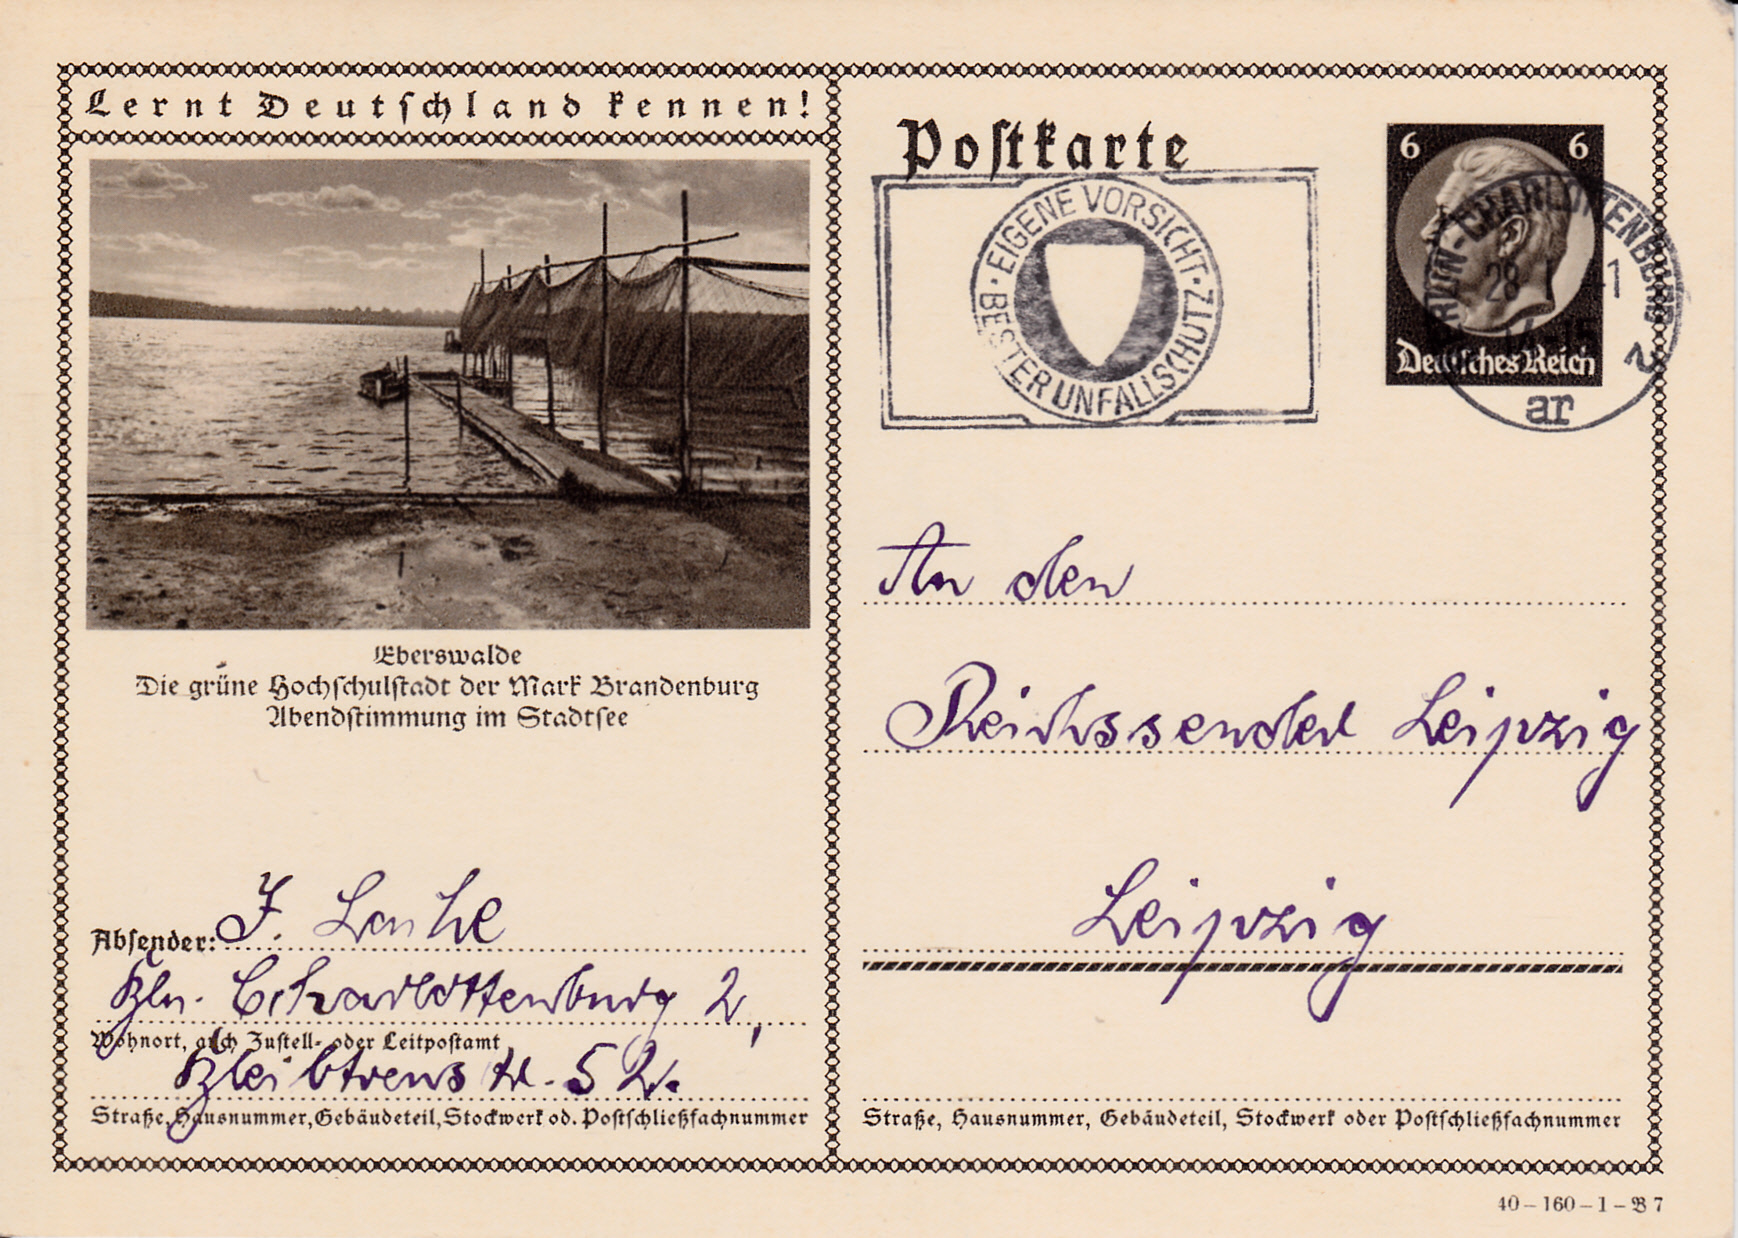 Lernt Deutschland kennen!
Eberswalde
Die grüne Hochschulstadt der Mark Brandenburg
Abendstimmung im Stadtsee
Absender: J.
Bln. Charlottenburg 2,
Wohnort, auch Zustell- oder Leitpostamt
Bleibtreustr. 52.
Straße, Hausnummer, Gebäudeteil, Stockwerk od. Postschließfachnummer
Postkarte
EIGENE VORSICHT · BESTER UNFALLSCHUTZ ·
6 6
Deutsches Reich
BERLIN-CHARLOTTENBURG 2
ar
An den
Reichssender Leipzig
Leipzig
Straße, Hausnummer, Gebäudeteil, Stockwerk oder Postschließfachnummer
40 – 160 – 1 – B 7